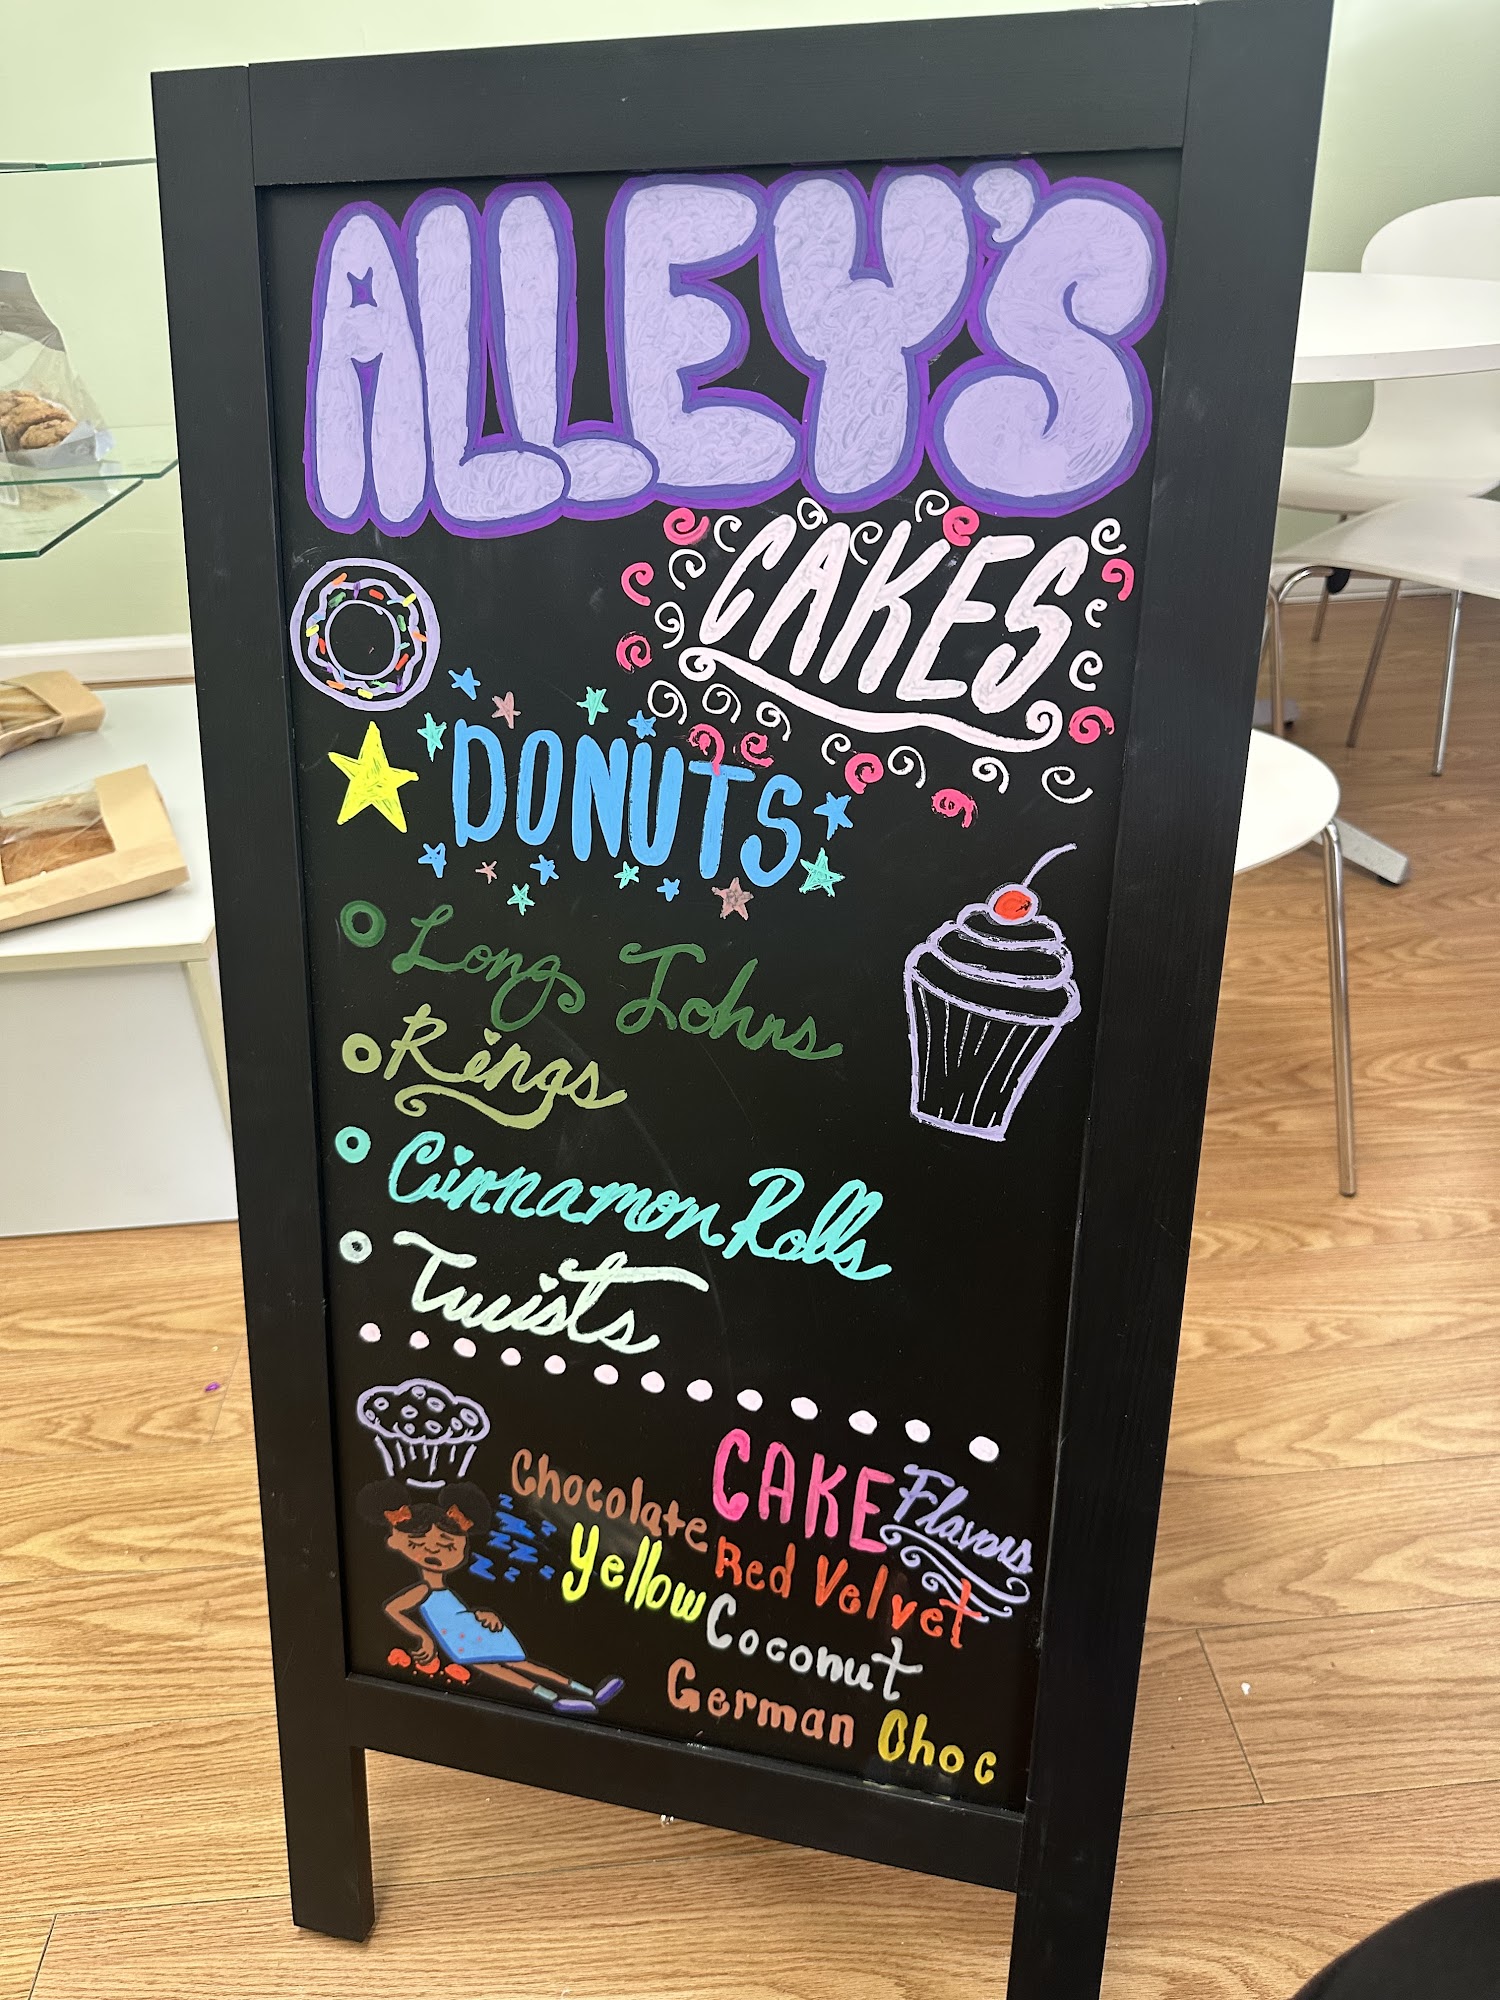 ALLEY'S
CAKES
DONUTS
Long Johns
Rings
Cinnamon Rolls
Twists
CAKE Flavors
Chocolate
Red Velvet
Yellow
Coconut
German Choc
z z z z z z